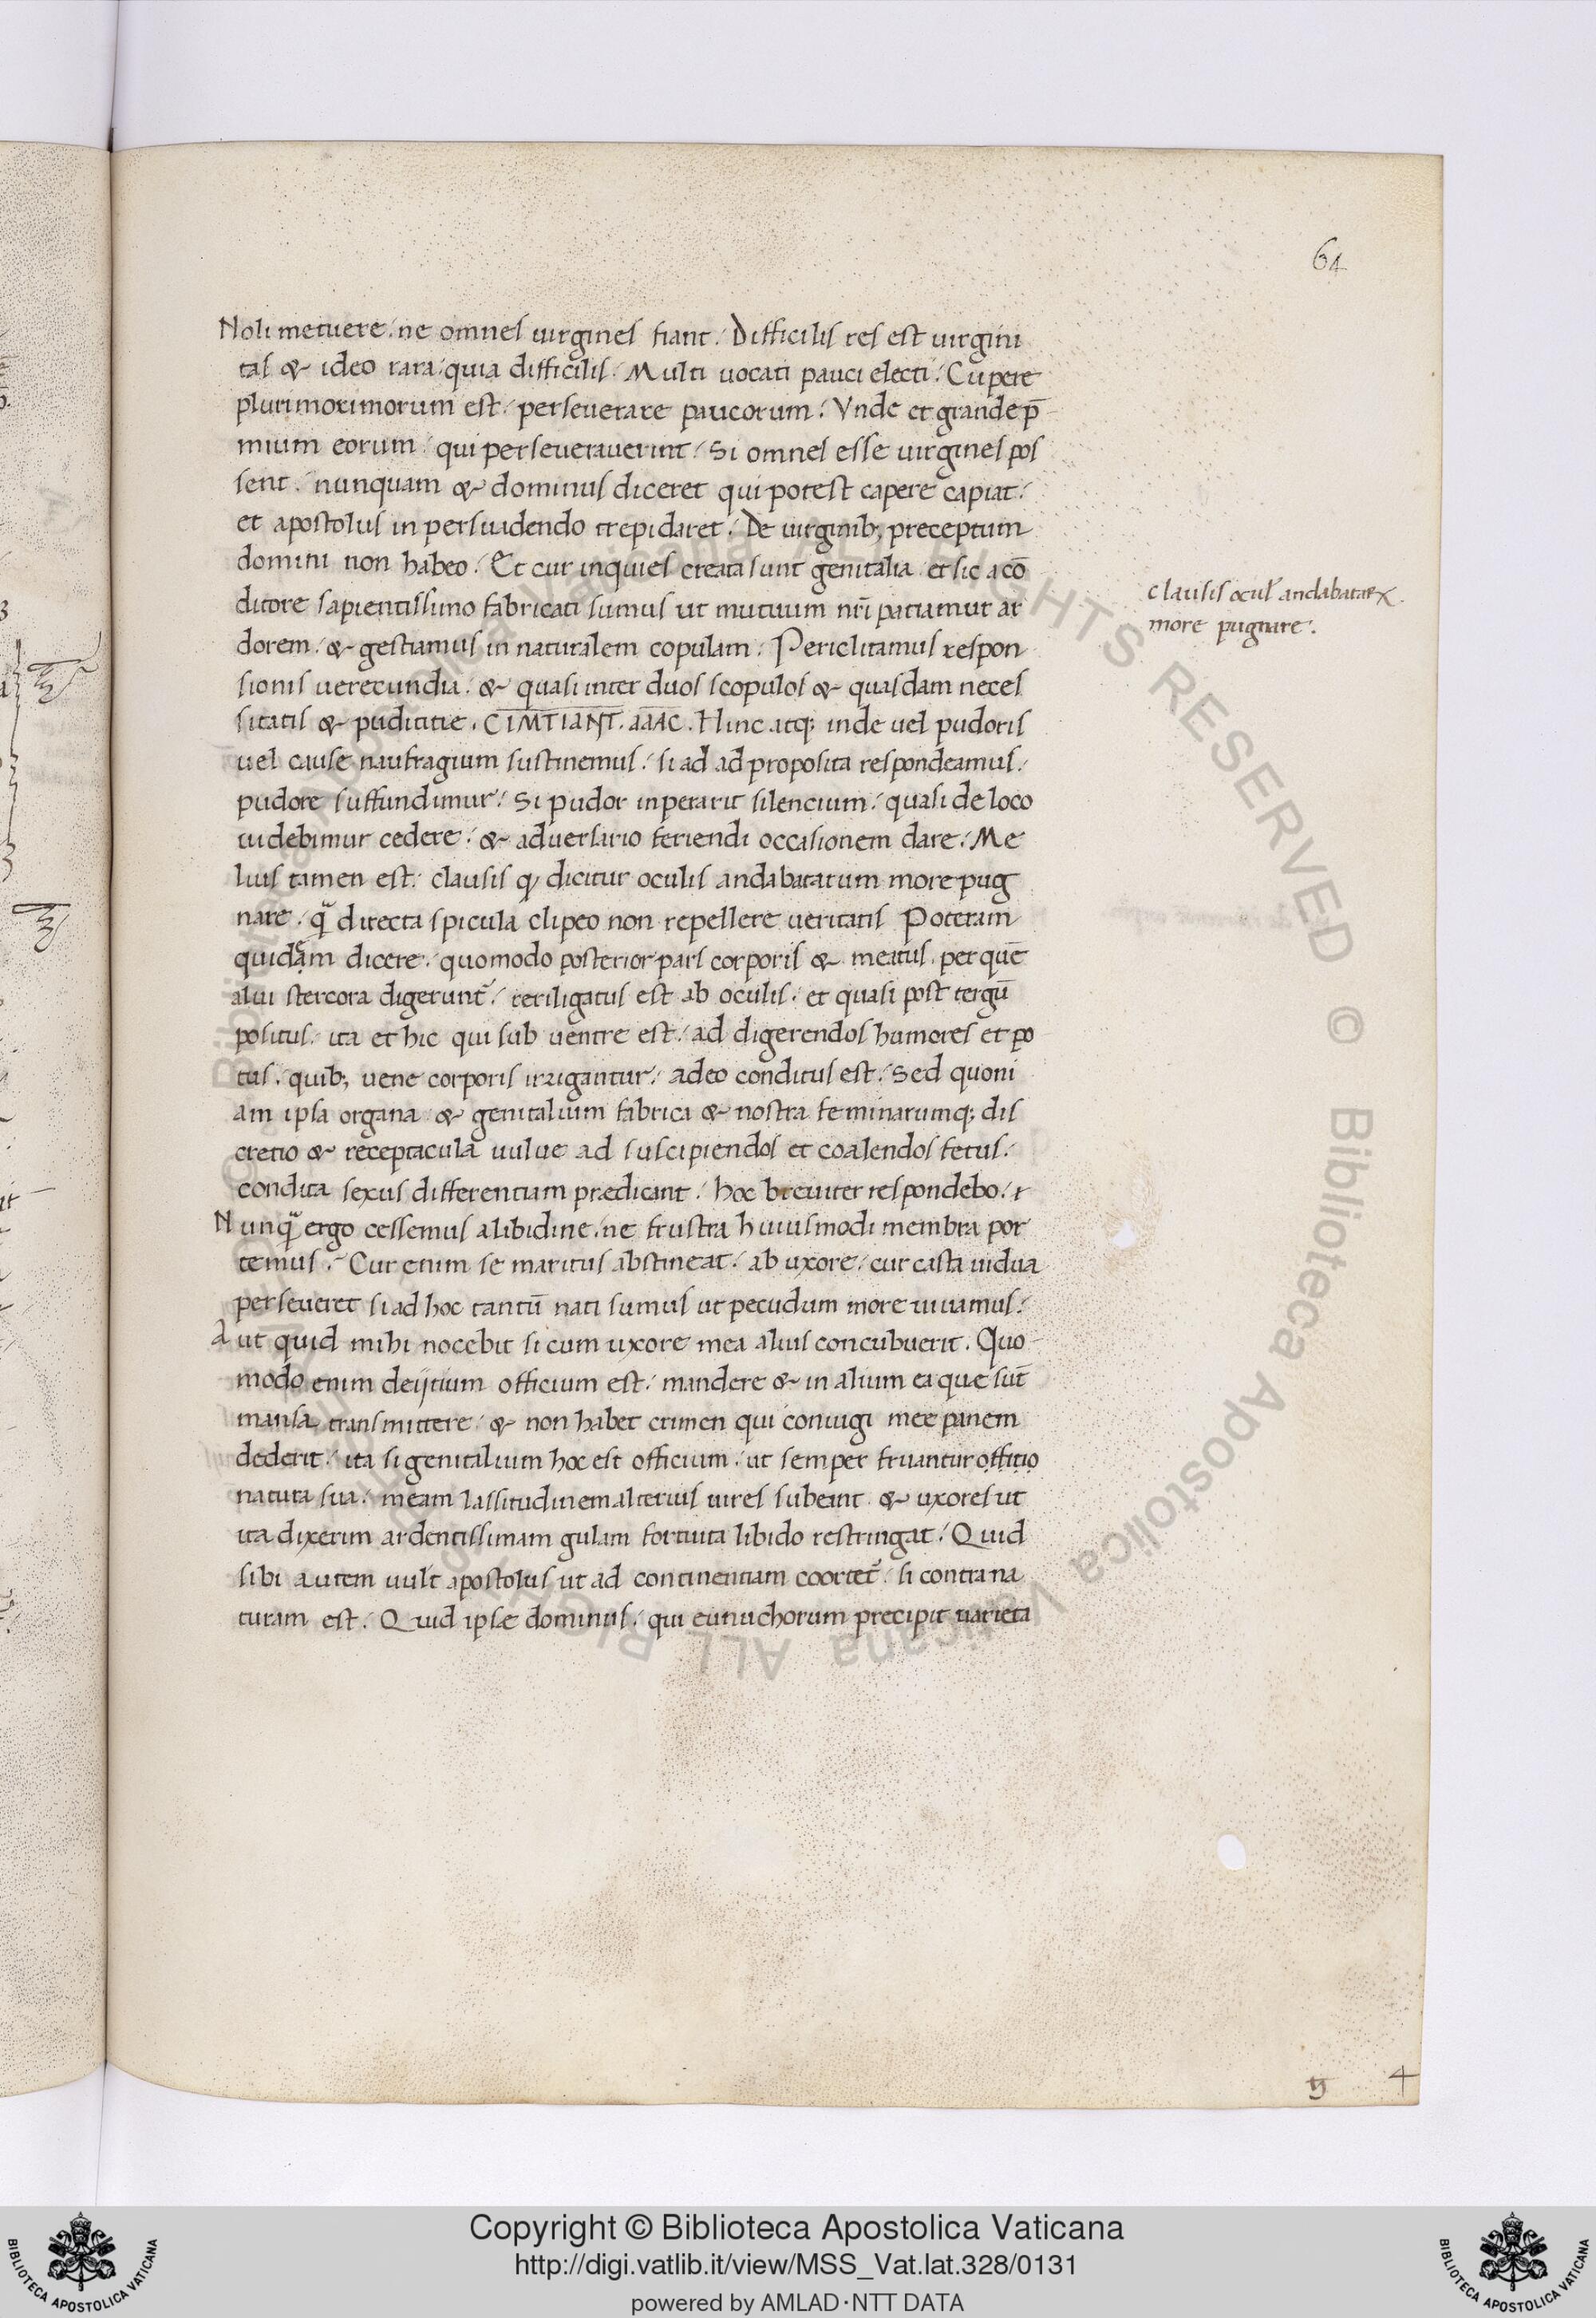 64
Noli metuere ne omnes uirgines fiant. Difficilis res est uirgini
tas & ideo rara quia difficilis. Multi uocati pauci electi. Cupere
plurimorimorum est perseuerare paucorum. Vnde et grande p̄
mium eorum qui perseuerauerint. Si omnes esse uirgines pos
sent nunquam & dominus diceret qui potest capere capiat.
et apostolus in persuadendo trepidaret. De uirginib; preceptum
domini non habeo. Et cur inquies creata sunt genitalia et sic a cō
ditore sapientissimo fabricati sumus ut mutuum nr̄i patiamur ar
dorem & gestiamus in naturalem copulam. Periclitamur respon
sionis uerecundia & quasi inter duos scopulos & quasdam neces
sitatis & pudicitie. CIMTIANT. AAAC. Hinc atq; inde uel pudoris
uel cause naufragium sustinemus. si ad ad proposita respondeamus.
pudore suffundimur. Si pudor inperarit silencium quasi de loco
uidebimur cedere & aduersario feriendi occasionem dare. Me
lius tamen est clausis qđ dicitur oculis andabatarum more pug
nare. q̄ directa spicula clipeo non repellere ueritatis Poteram
quidam dicere quomodo posterior pars corporis & meatus per quē
alui stercora digerunt̄ reriligatus est ab oculis et quasi post tergū
positus ita et hic qui sub uentre est ad digerendos humores et po
tus quib; uene corporis irrigantur adeo conditus est. Sed quoni
am ipsa organa & genitalium fabrica & nostra feminarumq; dis
cretio & receptacula uulue ad suscipiendos et coalendos fetus
condita sexus differentiam prædicant. hoc breuiter respondebo.
Nunq̄ ergo cessemus a libidine ne frustra huiusmodi membra por
temus. Cur enim se maritus abstineat ab uxore cur casta uidua
perseueret si ad hoc tantū nati sumus ut pecudum more uiuamus.
Aut quid mihi nocebit si cum uxore mea alius concubuerit. Quo
modo enim deijtium officium est mandere & in alium ea que sūt
mansa transmittere & non habet crimen qui coniugi mee panem
dederit ita si genitalium hoc est officium ut semper fruantur offitio
natura sua meam lassitudinem alterius uires subeant & uxores ut
ita dixerim ardentissimam gulam fortuita libido restringat. Quid
sibi autem uult apostolus ut ad continentiam coortet̄ si contra na
turam est. Quid ipse dominus qui eunuchorum precipit uarieta
clausis ocul andabatarꝝ
more pugnare.
4
Copyright © Biblioteca Apostolica Vaticana
http://digi.vatlib.it/view/MSS_Vat.lat.328/0131
powered by AMLAD·NTT DATA
BIBLIOTECA APOSTOLICA VATICANA
BIBLIOTECA APOSTOLICA VATICANA